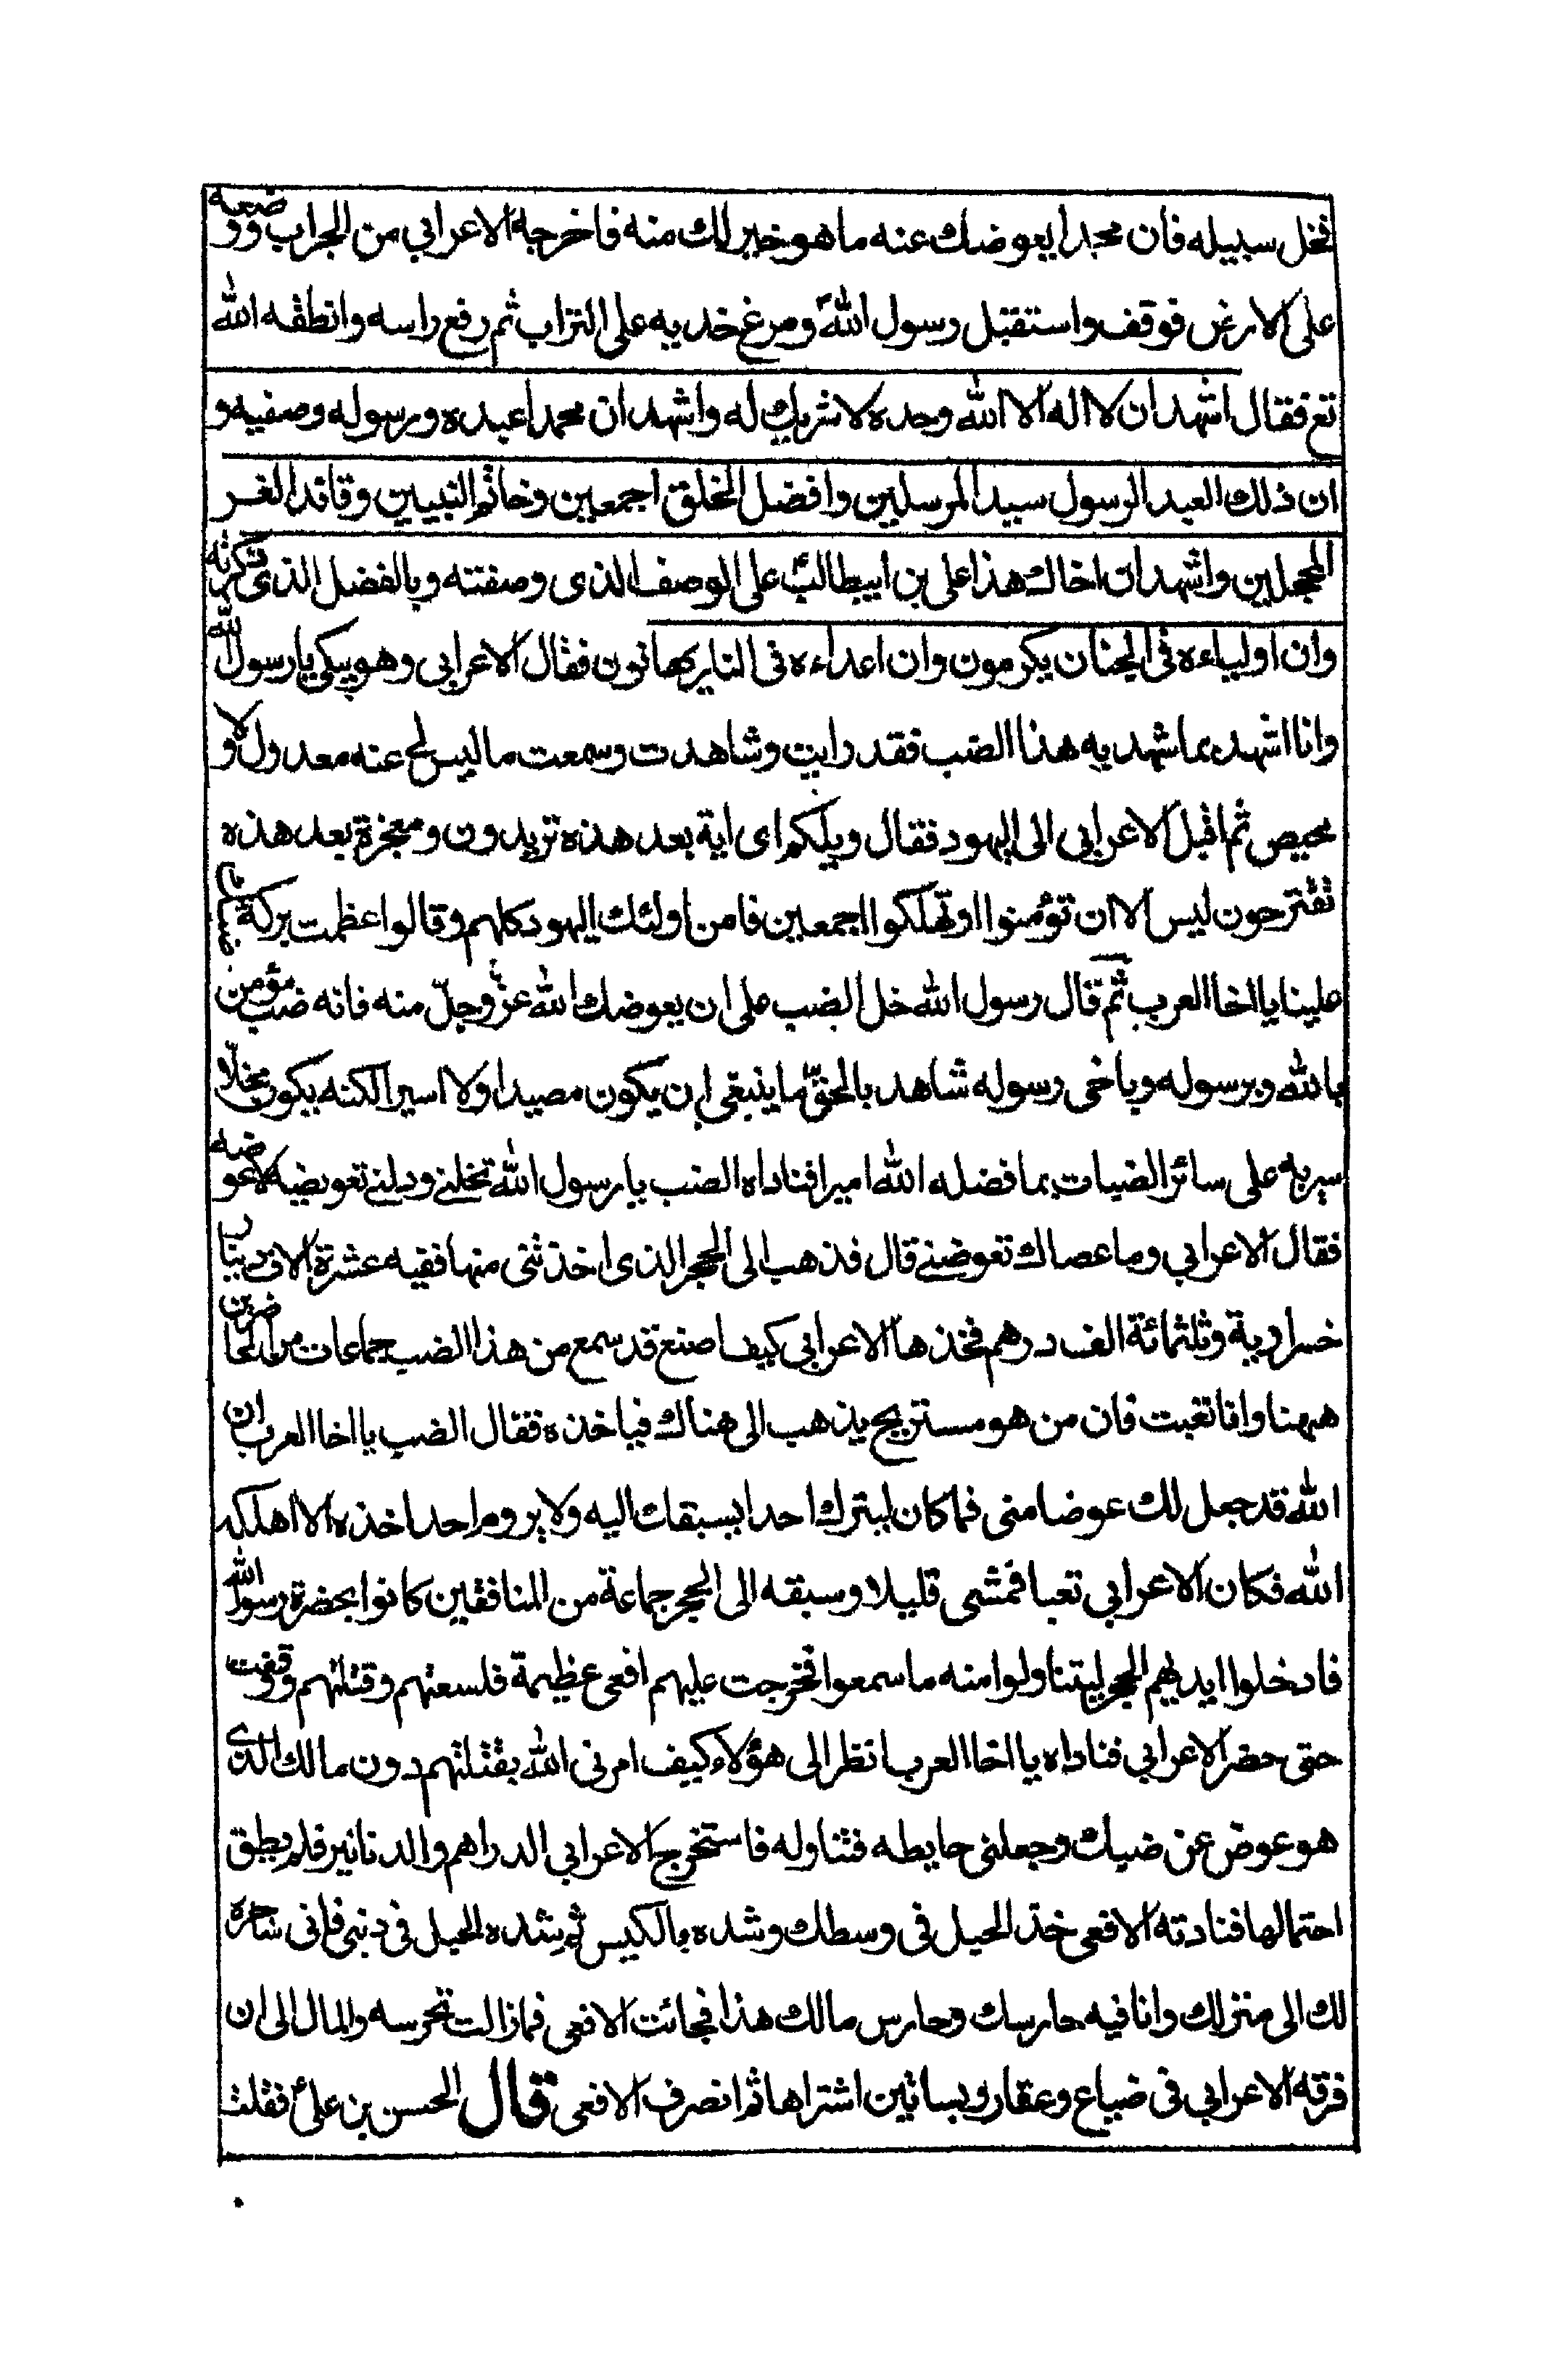 فخل سبيله فان محمدا يعوضك عنه ما هو خير لك منه فاخرجه الاعرابي من الجراب ووضعه
على الارض فوقف واستقبل رسول اللهؐ ومرغ خديه على التراب ثم رفع راسه وانطقه الله
تع فقال اشهد ان لا اله الا الله وحده لا شريك له واشهد ان محمدا عبده ورسوله وصفيه و
ان ذلك العبد الرسول سيد المرسلين وافضل الخلق اجمعين وخاتم النبيين وقائد الغر
المحجلين واشهد ان اخاك هذا علي بن ابيطالبؑ على الوصف الذى وصفته وبالفضل الذى ذكرته
وان اولياءه فى الجنان يكرمون وان اعداءه فى النار يهانون فقال الاعرابى وهو يبكى يا رسول الله
وانا اشهد بما شهد به هذا الضب فقد رايت وشاهدت وسمعت ما ليس لى عنه معدول ولا
محيص ثم اقبل الاعرابى الى اليهود فقال ويلكم اى اية بعد هذه تريدون ومعجزة بعد هذه
تقترحون ليس الا ان تؤمنوا او تهلكوا اجمعين فامن اولئك اليهود كلهم وقالوا عظمت بركة ضبك
علينا يا اخا العرب ثم قال رسول الله خل الضب على ان يعوضك الله عز وجلّ منه فانه ضب مؤمن
بالله وبرسوله وباخى رسوله شاهد بالحقّ ما ينبغى ان يكون مصيدا ولا اسيرا لكنه يكون مخلّا
سربه على سائر الضبات بما فضله الله اميرا فناداه الضب يا رسول الله تخلنى وولنى تعويضه لاعوضه
فقال الاعرابي وما عصاك تعوضنى قال فذهب الى الحجر الذى اخذتنى منها ففيه عشرة الاف دينار
خسراوية وثلثمائة الف درهم فخذها الاعرابى كيف اصنع قد سمع من هذا الضب جماعات من الحاضرين
ههنا وانا تغبت فان من هو مستريح يذهب الى هناك فياخذه فقال الضب يا اخا العرب ان
الله قد جعل لك عوضا منى فما كان ليترك احدا يسبقك اليه ولا يروم احد اخذه الا اهلكه
الله فكان الاعرابي تعبا فمشى قليلا وسبقه الى الحجر جماعة من المنافقين كانوا بحضرة رسول الله
فادخلوا ايديهم الحجر ليتناولوا منه ما سمعوا فخرجت عليهم افعى عظيمة فلسعتهم وقتلتهم ووقفت
حتى حضر الاعرابي فناداه يا اخا العرب انظر الى هؤلاء كيف امرنى الله بقتلهم دون مالك الذى
هو عوض عن ضبك وجعلنى حايطه فتناوله فاستخرج الاعرابي الدراهم والدنانير فلم يطق
احتمالها فنادته الافعى خذ الحبل فى وسطك وشده بالكيس ثم شده الحبل فى ذنبى فانى ساجره
لك الى منزلك وانا فيه حارسك وحارس مالك هذا فجائت الافعى فمازالت تحرسه والمال الى ان
فرقه الاعرابي فى ضياع وعقار وبساتين اشتراها ثم انصرف الافعى قال الحسن بن علىؑ فقلت